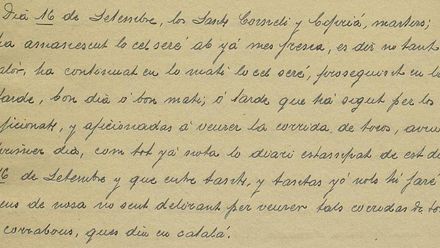 Dia 16 de Setembre, los Sants Corneli y Cipriá, martirs;
ha amanescut lo cel seré ab yá mes fresca, es dir no tant
calór, ha continuat en lo matí lo cel seré, proseguint en la
tarde, bon dia ó bon matí; ó tarde que há sigut per los
aficionats, y aficionadas á veurer la corrida, de toros, avui
primer dia, com tot yá nota lo diari estampat de est dia
16 de Setembre y que entre tants, y tantas yó nols hi faré
feus de nosa no sent delirant per veurer tals corridas de to
corrabous, ques diu en catalá.